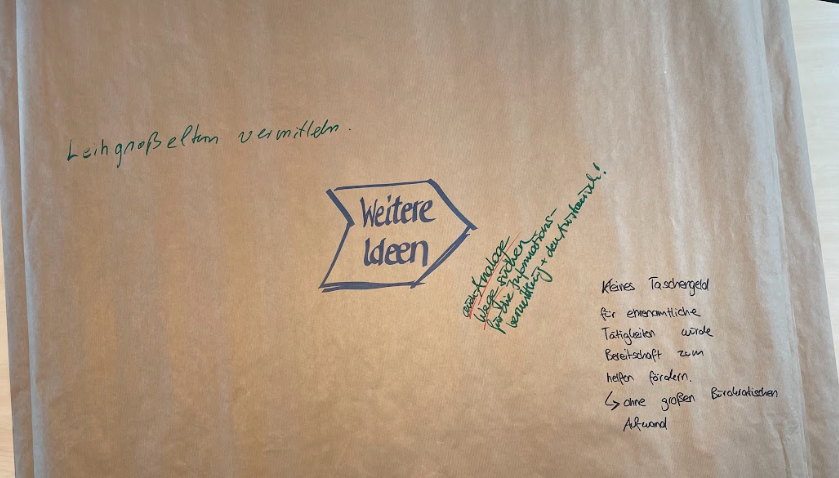 Leihgroßeltern vermitteln.
Weitere
Ideen
auch Analoge
Wege suchen
für die Informations-
vermittlung + den Austausch!
Kleines Taschengeld
für ehrenamtliche
Tätigkeiten würde
Bereitschaft zum
helfen fördern.
↳ ohne großen Bürokratischen
Aufwand